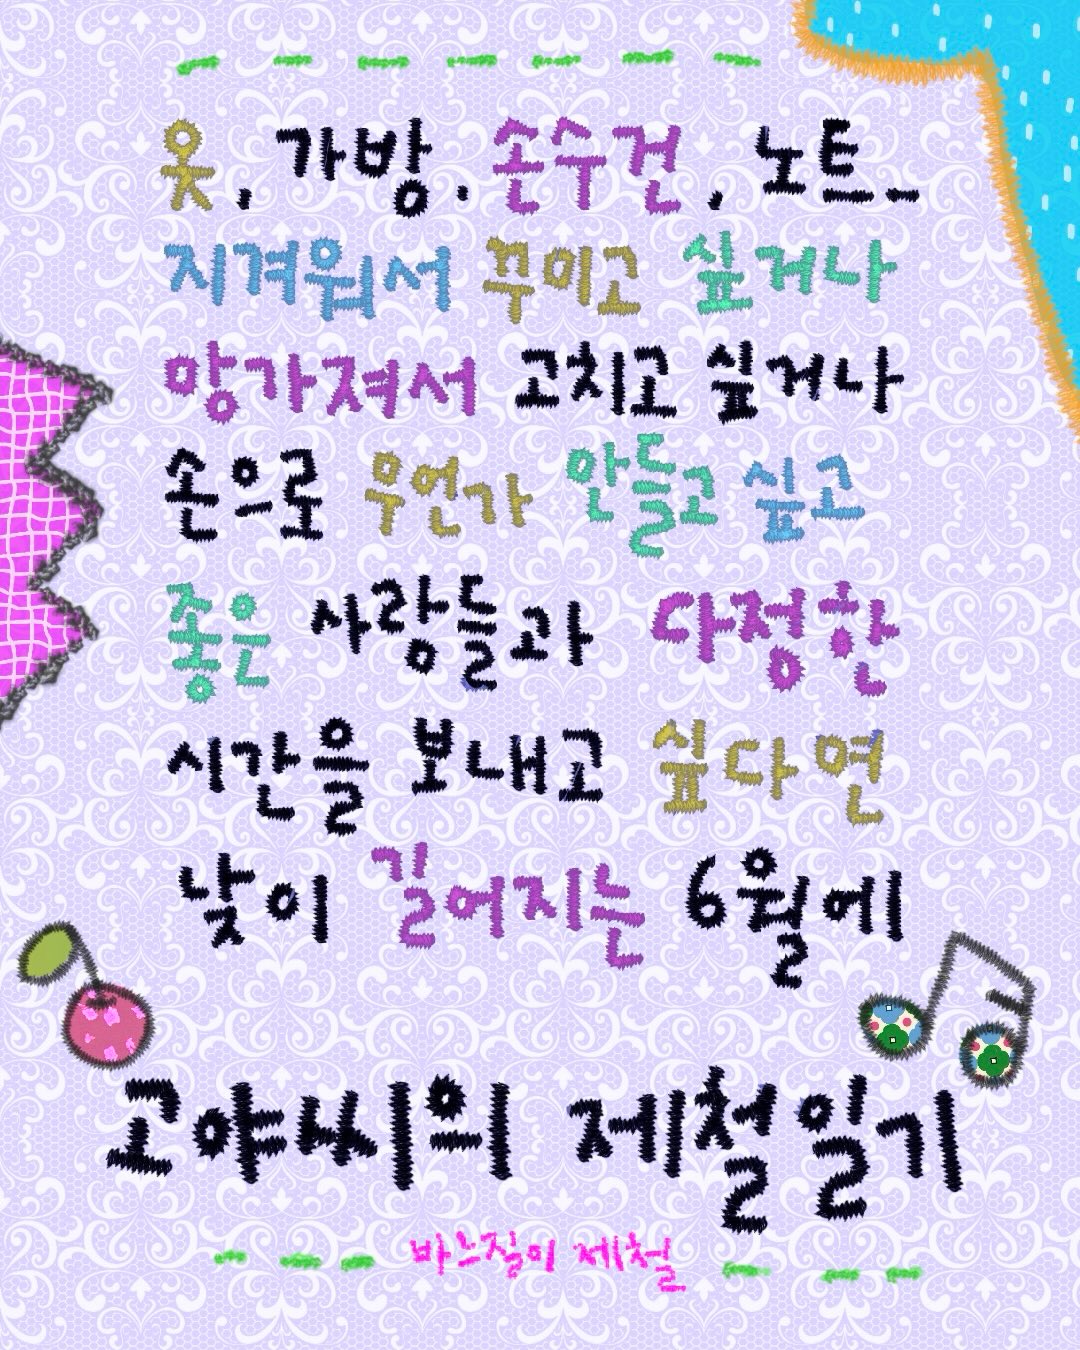 옷, 가방, 손수건, 노트_
지겨워서 꾸미고 싶거나
망가져서 고치고 싶거나
손으로 무언가 만들고 싶고
좋은 사람들과 다정한
시간을 보내고 싶다면
낮이 길어지는 6월에
고야씨의 제철일기
바느질이 제철